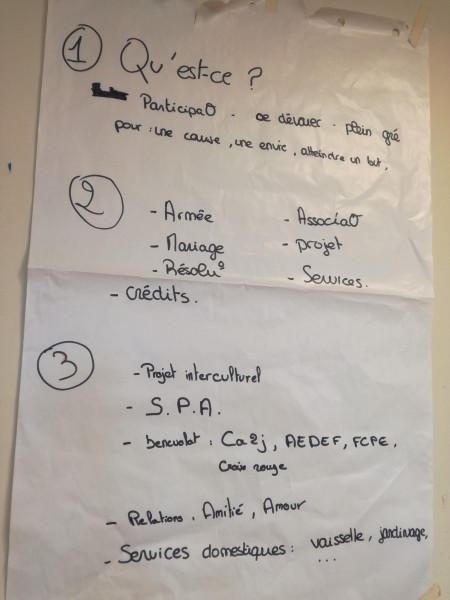 1 Qu'est-ce ?
ParticipaO - se dévouer - plein gré
pour : une cause, une envie, atteindre un but,
2
- Armée
- Mariage
- Résolu°
- Crédits.
- AssociaO
- projet
- Services.
3
- Projet interculturel
- S.P.A.
- benevolat : Ca2j, AEDEF, FCPE,
Croix rouge
- Relations, Amitié, Amour
- Services domestiques : vaisselle, jardinage,
...